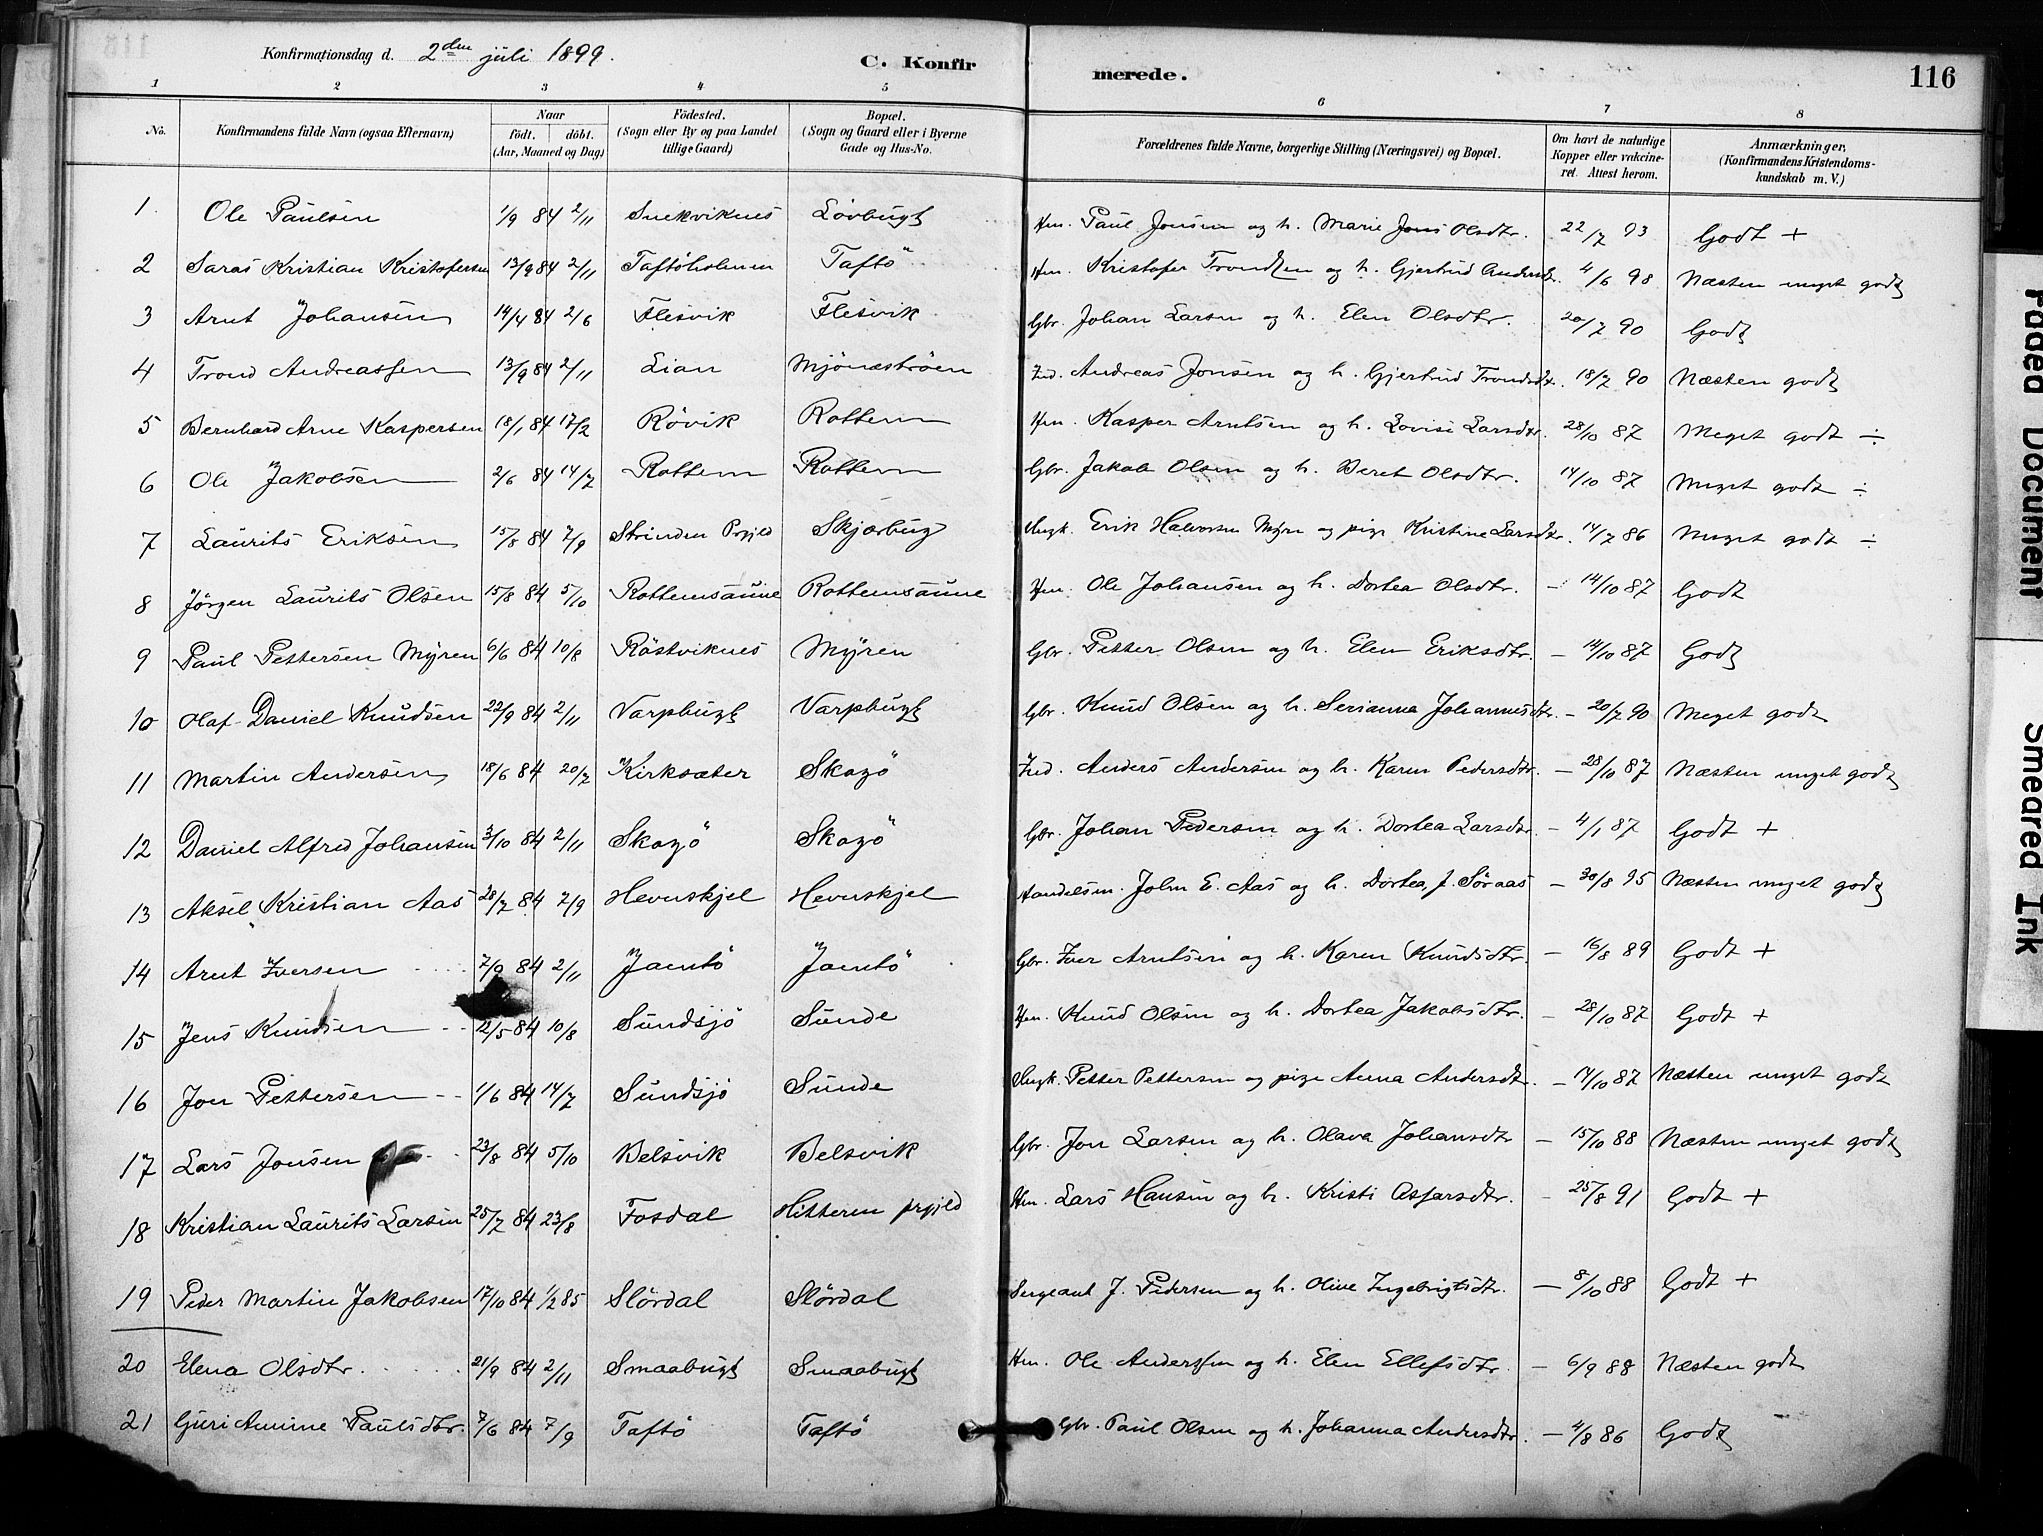 Konfirmationsdag d. 2den juli 1899.
C. Konfirmerede.
116
1 2 3 4 5 6 7 8
No. Konfirmandens fulde Navn (ogsaa Efternavn) Naar født. døbt. (Aar, Maaned og Dag) Fødested. (Sogn eller By og paa Landet tillige Gaard) Bopæl. (Sogn og Gaard eller i Byerne Gade og Hus-No. Forældrenes fulde Navne, borgerlige Stilling (Næringsvei) og Bopæl. Om havt de naturlige Kopper eller vakcineret. Attest herom. Anmærkninger, (Konfirmandens Kristendomskundskab m. V.)
1. Ole Paulsen 1/9 84 2/11 Snekviknes Lövbugt Hm. Paul Jonsen og h. Marie Jons Olsdtr. 22/7 93 Godt +
2 Saras Kristian Kristofersen 13/9 84 2/11 Taftöholmen Taftö Hm. Kristofer Trondsen og h. Gjertrud Andersdtr. 4/6 98 Næsten meget godt
3 Arnt Johansen 14/4 84 2/6 Flesvik Flesvik Gbr. Johan Larsen og h. Elen Olsdtr. 20/7 90 Godt
4 Trond Andreassen 13/9 84 2/11 Lian Mjönaströen Ind. Andreas Jonsen og h. Gjertrud Trondsdtr. 18/7 90 Næsten godt
5 Bernhard Arne Kaspersen 18/1 84 17/2 Rövik Rottem Hm. Kasper Arntsen og h. Lovise Larsdtr. 28/10 87 Meget godt ÷
6 Ole Jakobsen 2/6 84 14/7 Rottem Rottem Gbr. Jakob Olsen og h. Beret Olsdtr. 14/10 87 Meget godt ÷
7 Laurits Eriksen 15/8 84 7/9 Strinden Prgjld Skjærbug Ungk. Erik Halvorsen Myren og pige Kristine Larsdtr. 14/7 86 Meget godt ÷
8 Jörgen Laurits Olsen 15/8 84 5/10 Rottemsaune Rottemsaune Hm. Ole Johansen og h. Dortea Olsdtr. – 14/10 87 Godt
9 Paul Pettersen Myren 6/6 84 10/8 Röstviknes Myren Gbr. Petter Olsen og h. Elen Eriksdtr. – 14/10 87 Godt
10 Olaf Daniel Knudsen 22/9 84 2/11 Varpbugt Varpbugt Gbr. Knud Olsen og h. Serianna Johannesdtr. – 20/7 90 Meget godt
11 Martin Andersen 18/6 84 20/7 Kirksæter Skogö Ind. Anders Andersen og h. Karen Pedersdtr. – 28/10 87 Næsten meget godt
12 Daniel Alfred Johansen 3/10 84 2/11 Skogö Skogö Gbr. Johan Pedersen og h. Dortea Larsdtr. – 4/1 87 Godt +
13 Aksel Kristian Aas 28/7 84 7/9 Hevnskjel Hevnskjel Handelsm. John E. Aas og h. Dortea J. Söraas – 30/8 95 Næsten meget godt
14 Arnt Iversen 7/9 84 2/11 Jamtö Jamtö Gbr. Iver Arntsen og h. Karen Knudsdtr. – 16/8 89 Godt +
15 Jens Knudsen 12/5 84 10/8 Sundsjö Sunde Hm. Knud Olsen og h. Dortea Jakobsdtr. – 28/10 87 Godt +
16 Jon Pettersen 1/6 84 14/7 Sundsjö Sunde Ungk. Petter Pettersen og pige Anna Andersdtr. – 14/10 87 Næsten meget godt
17 Lars Jonsen 23/8 84 5/10 Belsvik Belsvik Gbr. Jon Larsen og h. Olava Johansdtr – 15/10 88 Næsten meget godt
18 Kristian Laurits Larsen 25/7 84 23/8 Fosdal Hitteren prgjld Hm. Lars Hansen og h. Kristi Asparsdtr. – 25/8 91 Godt +
19 Peder Martin Jakobsen 17/10 84 1/2 85 Slördal Slördal Sergeant J. Pedersen og h. Oline Ingebrigtsdtr. – 8/10 88 Godt +
20 Elena Olsdtr. 21/9 84 2/11 Smaabugt Smaabugt Hm. Ole Anderssen og h. Elen Ellefsdtr. – 6/9 88 Næsten godt
21 Guri Amine Paulsdtr. 7/6 84 7/9 Taftö Taftö Gbr. Paul Olsen og h. Johanna Andersdtr. – 4/8 86 Godt
Faded Document
Smeared Ink